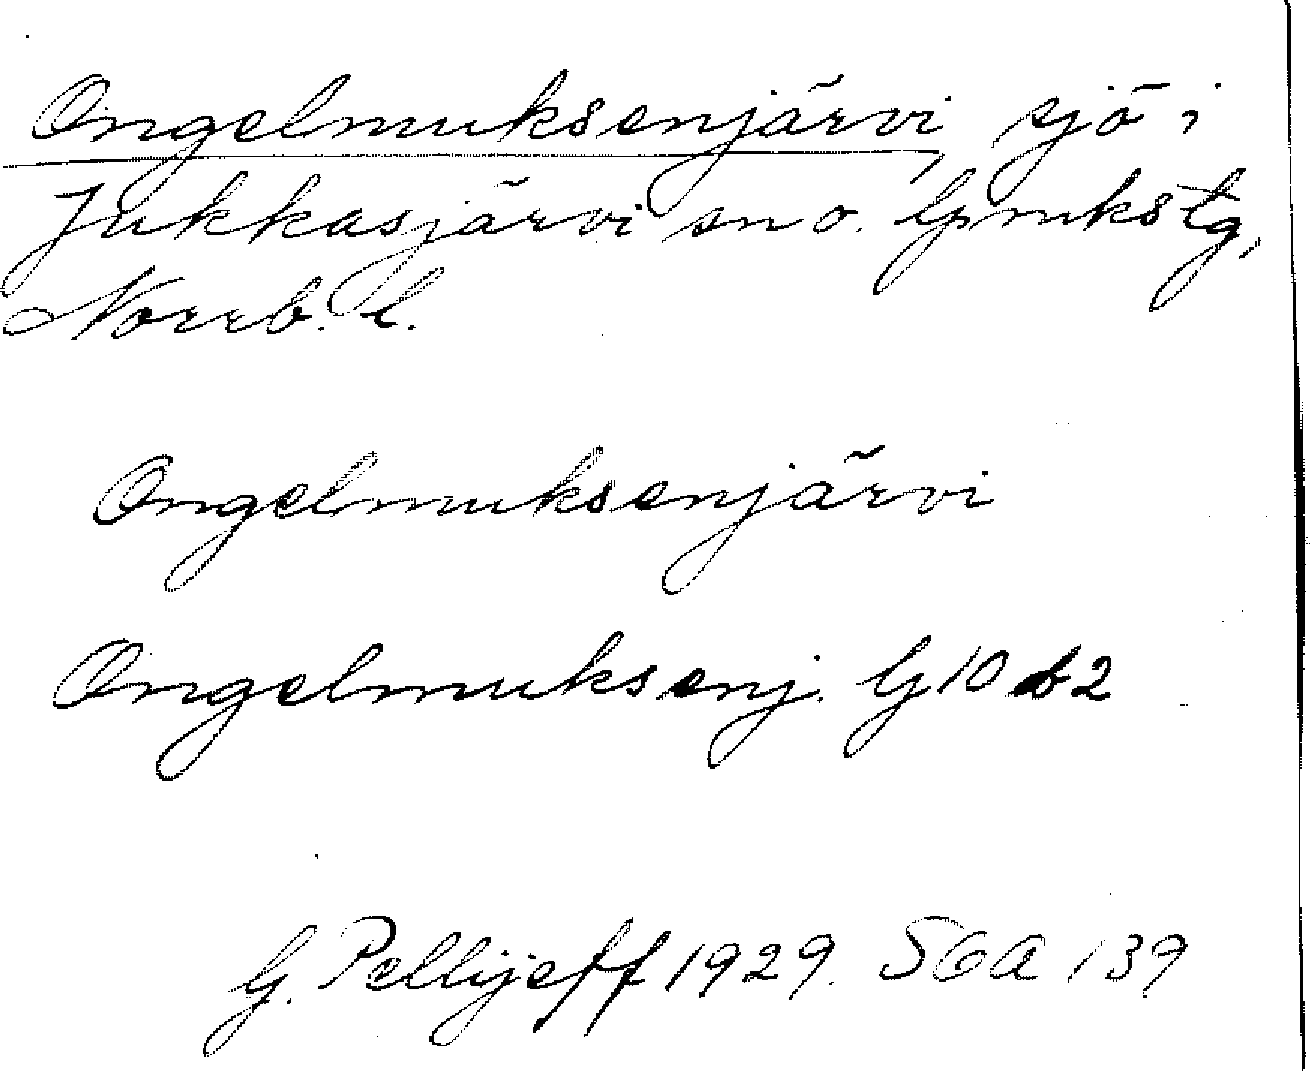 Ongelmuksenjärvi, sjö i
Jukkasjärvi sn o. lpmkstg,
Norrb. l.
Ongelmuksenjärvi
Ongelmuksenj. G 10 b2
G. Pellijeff 1929. SOA 139